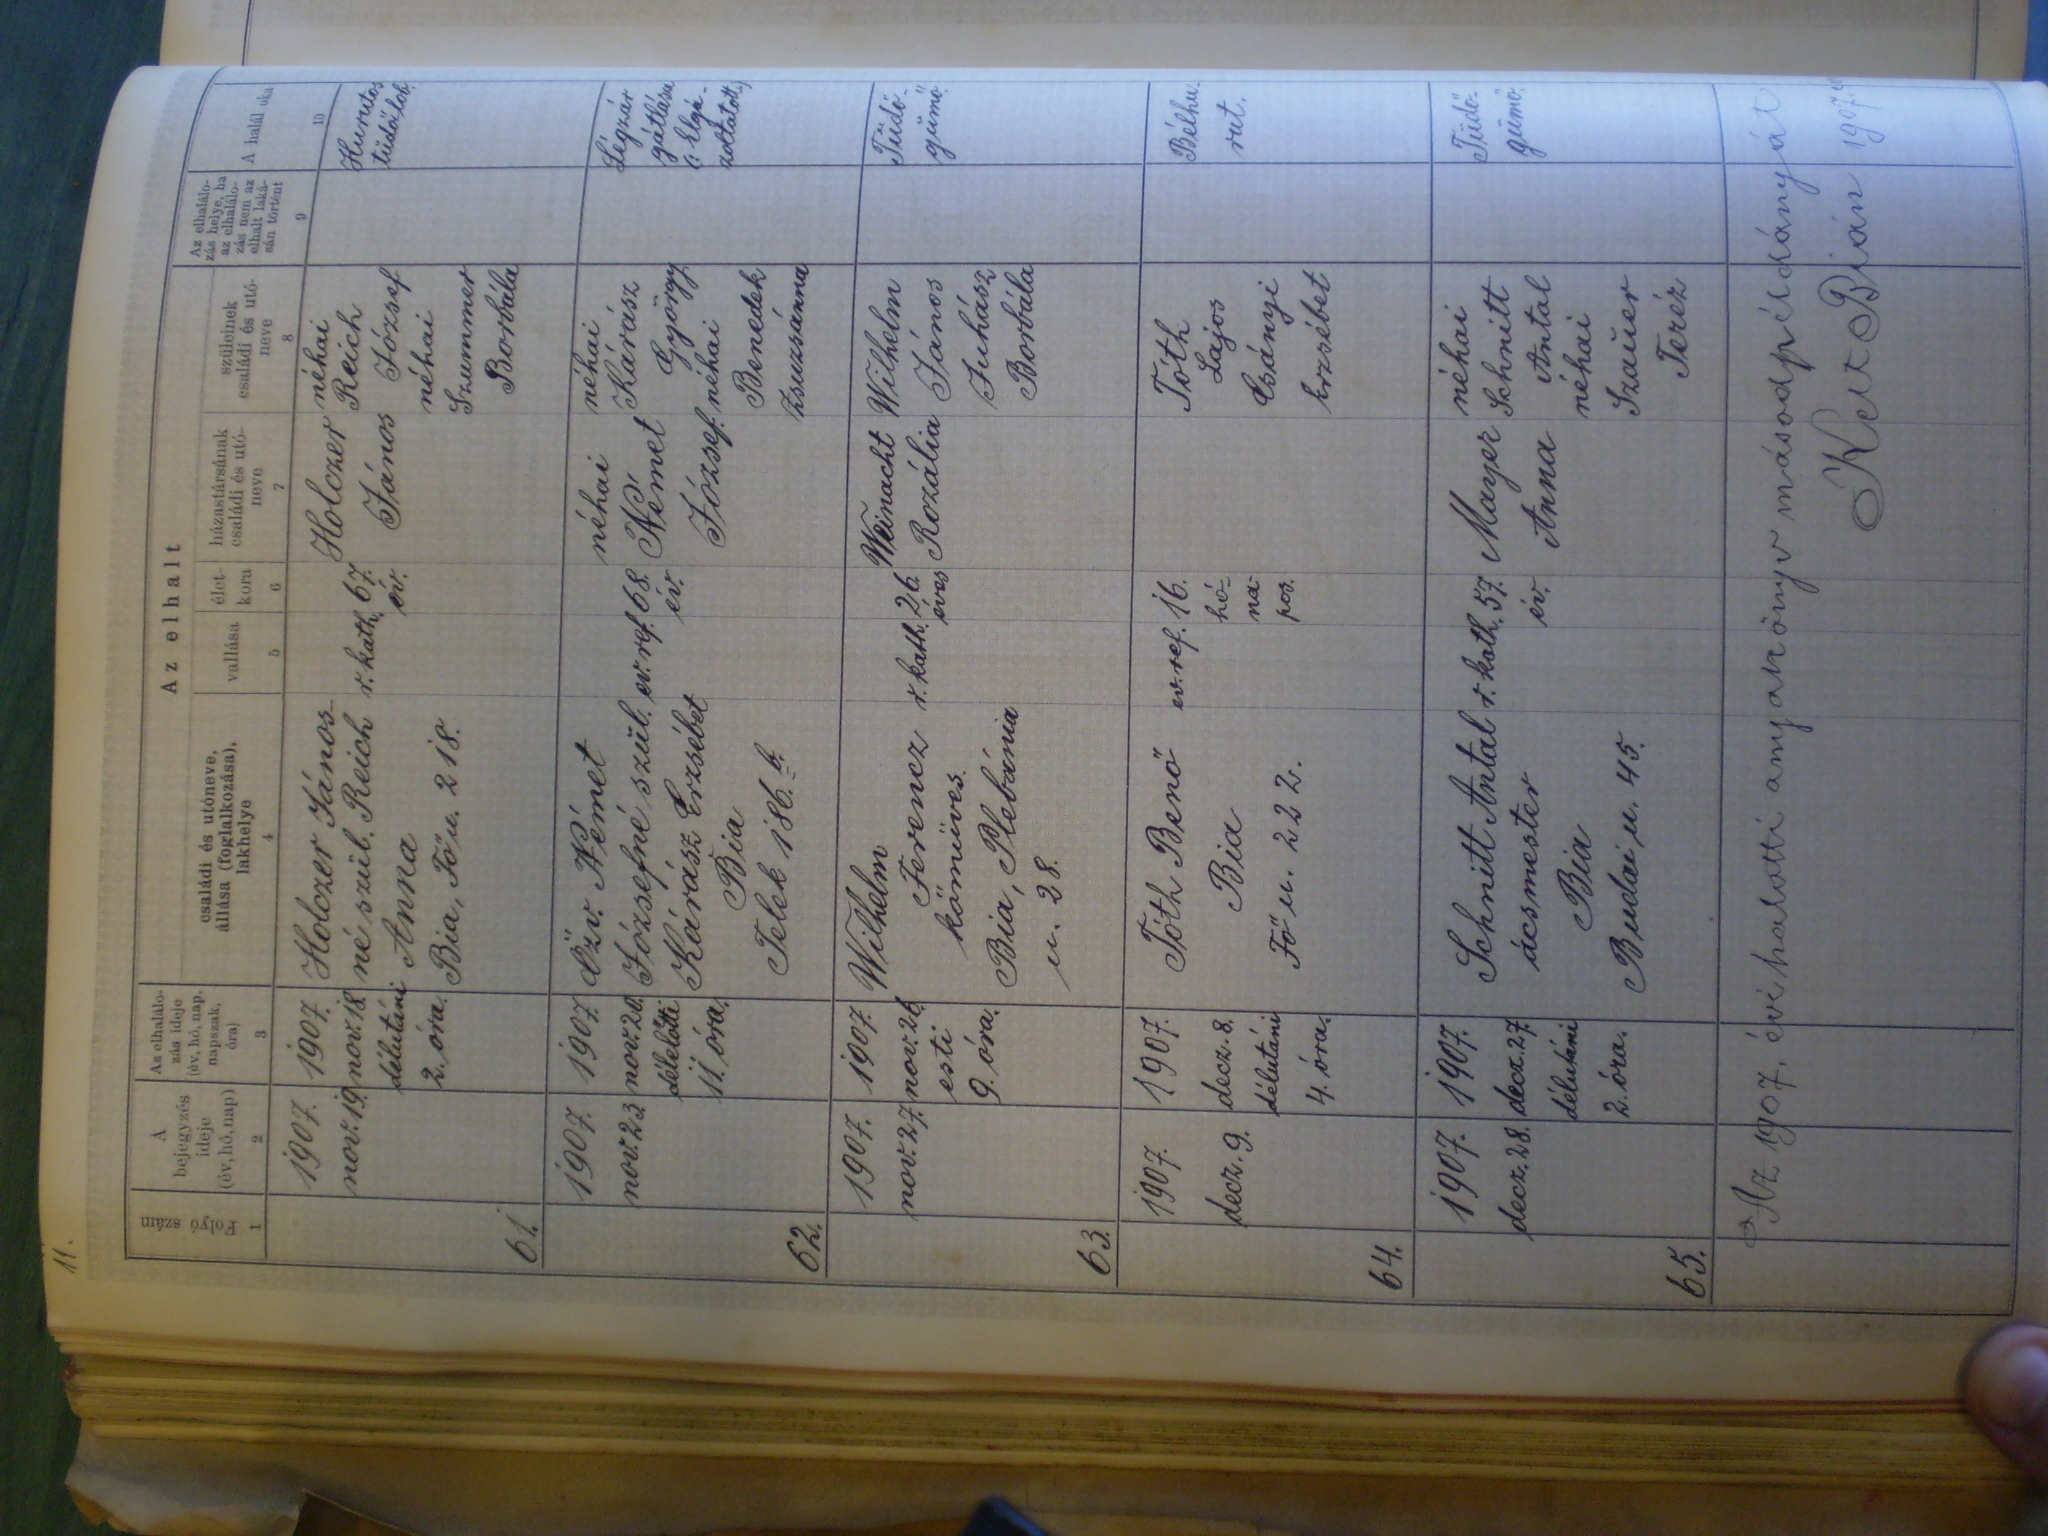 11.
Az elhalt
Folyó
szám
A
bejegyzés
ideje
(év, hó, nap)
Az elhalálo-
zás ideje
(év, hó, nap,
napszak,
óra)
családi és utóneve,
állása (foglalkozása),
lakhelye
vallása
élet-
kora
házastársának
családi és utó-
neve
szüleinek
családi és utó-
neve
Az elhalálo-
zás helye, ha
az elhalálo-
zás nem az
elhalt laká-
sán történt
A halál oka
1
2
3
4
5
6
7
8
9
10
61.
1907.
nov. 19.
1907.
nov. 18.
délutáni
2. óra.
Holczer János-
né szül. Reich
Anna
Bia, Fő u. 218.
r. kath.
67.
év.
Holczer
János
néhai
Reich
József
néhai
Szummer
Borbála
Hurutos
tüdőlob.
62.
1907.
nov. 23
1907.
nov. 20.
délelőtti
11. óra.
Özv. Német
Józsefné szül.
Kárász Erzsébet
Bia
Telek 186. b.
ev. ref.
68.
év.
néhai
Német
József.
néhai
Kárász
György
néhai
Benedek
Zsuzsánna
Légzár
gátlása
63.
1907.
nov. 27.
1907.
nov. 26.
esti
9. óra.
Wilhelm
Ferencz
kőműves.
Bia, Plebánia
u. 28.
r. kath.
26.
éves
Weinacht
Rozália
Wilhelm
János
Juhász
Borbála
Tüdő-
gümő.
64.
1907.
decz. 9.
1907.
decz. 8.
délutáni
4. óra.
Tóth Benő
Bia
Fő u. 222.
ev. ref.
16.
hó-
na-
pos.
Tóth
Lajos
Csányi
Erzsébet
Bélhu-
rut.
65.
1907.
decz. 28.
1907.
decz. 27.
délutáni
2. óra.
Schmitt Antal
ácsmester
Bia
Budai u. 45.
r. kath.
57.
év.
Mayer
Anna
néhai
Schmitt
Antal
néhai
Szauer
Teréz
Tüdő-
gümő.
Az 1907. évi halotti anyakönyv másodpéldányát
Kelt Bián 1907.